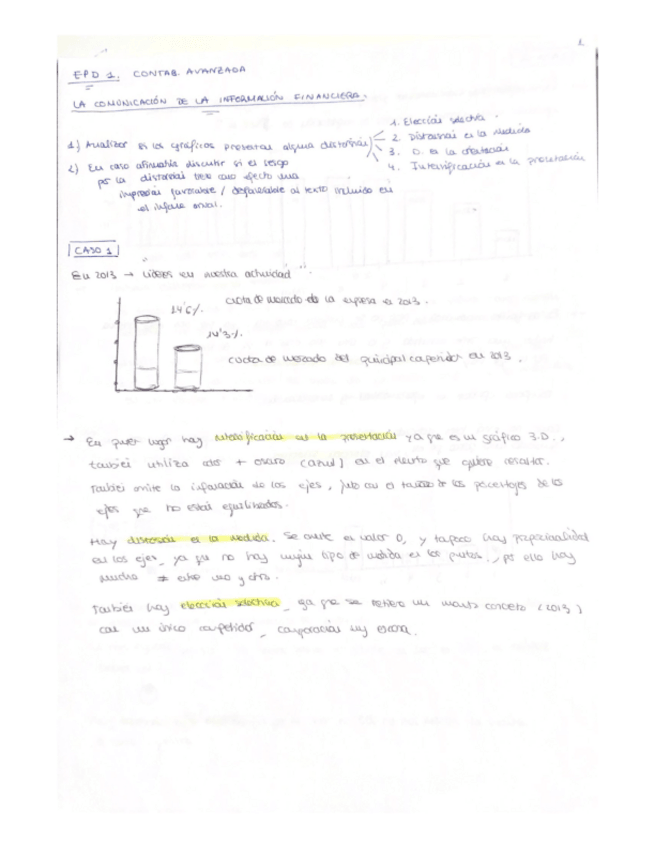 1
EPD 1. CONTAB. AVANZADA
LA COMUNICACIÓN DE LA INFORMACIÓN FINANCIERA.
1) Analizar si los gráficos presentan alguna distorsión
1. Elección selectiva.
2. Distorsión en la medida
3. D. en la orientación
4. Intensificación en la presentación
2) En caso afirmativo discutir si el sesgo
por la distorsión tiene como efecto una
impresión favorable / desfavorable al texto incluido en
el informe anual.
CASO 1
En 2013 → Líderes en nuestra actividad
14'6%.
cuota de mercado de la empresa en 2013.
14'3%.
cuota de mercado del principal competidor en 2013.
→ En primer lugar hay intensificación en la presentación ya que es un gráfico 3.D.,
también utiliza color + oscuro (azul) en el elemento que quiere resaltar.
También omite la información de los ejes, junto con el tamaño de los porcentajes de los
ejes que no están equilibrados.
Hay distorsión en la medida. Se omite el valor 0, y tampoco hay proporcionalidad
en los ejes, ya que no hay ningún tipo de medida en los puntos., por ello hay
mucha ≠ entre uno y otro.
También hay elección selectiva, ya que se refiere un momento concreto (2013)
con un único competidor, comparación muy escasa.